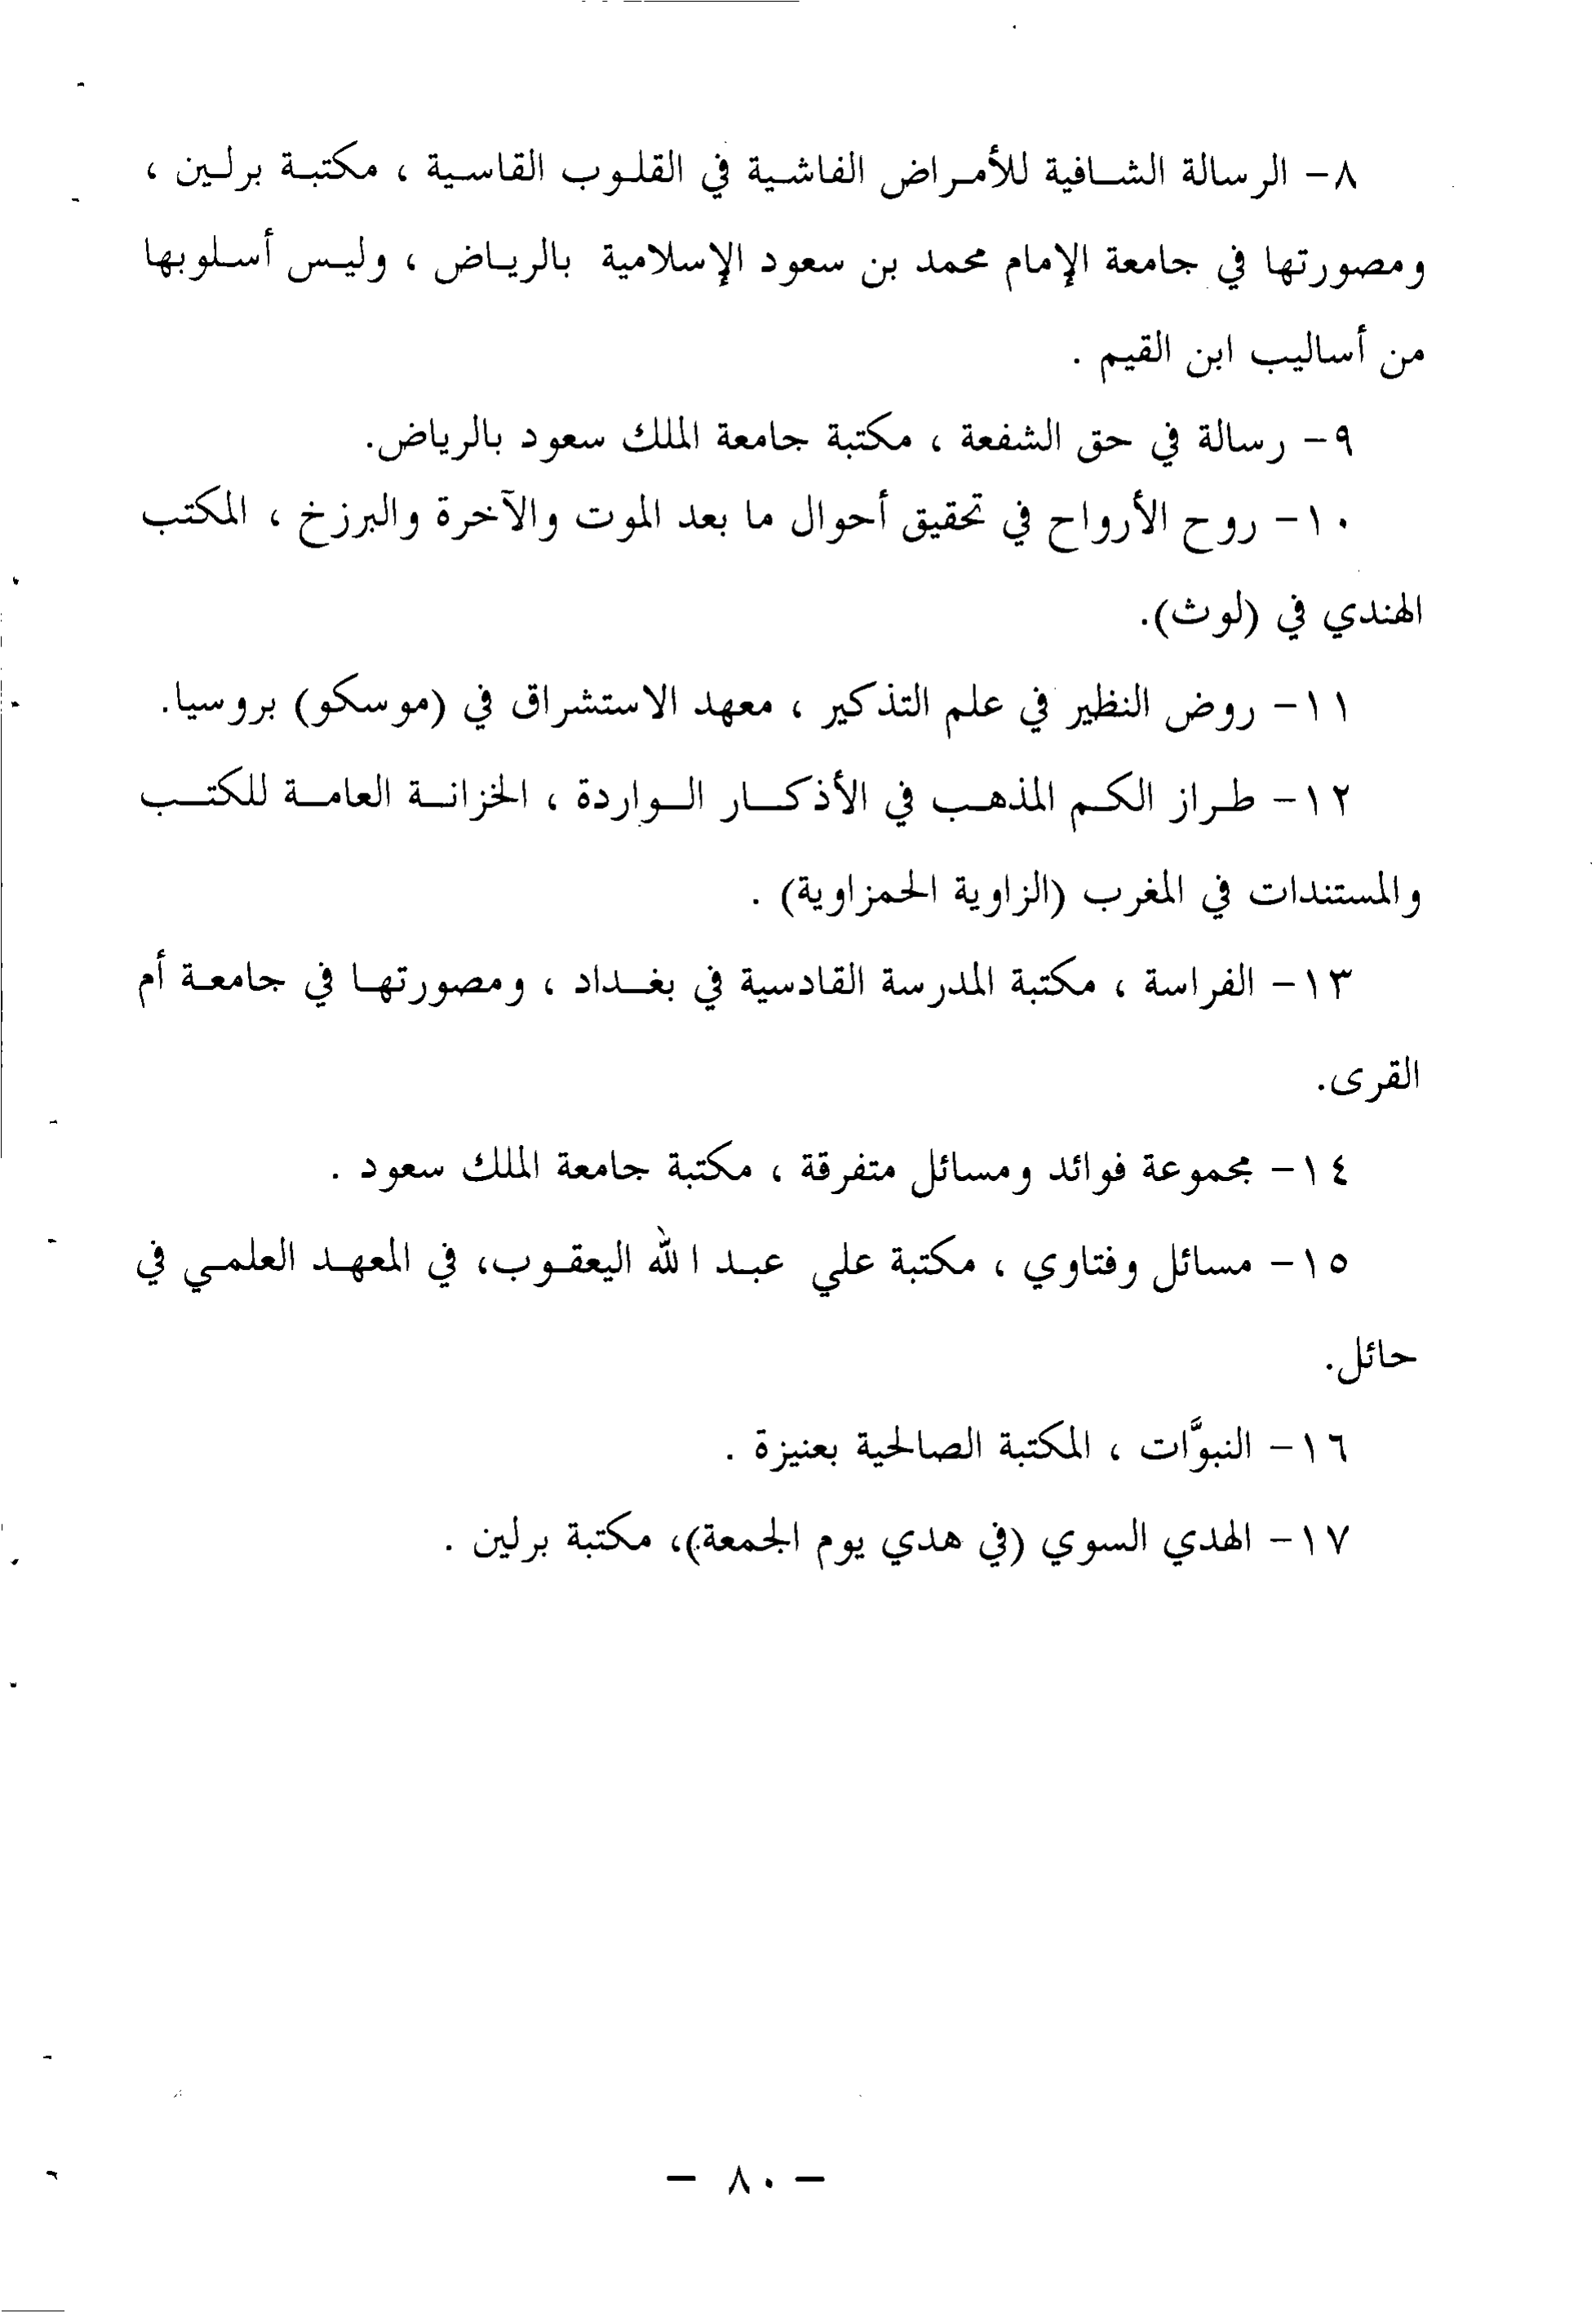 ٨- الرسالة الشافية للأمراض الفاشية في القلوب القاسية ، مكتبة برلين ،
ومصورتها في جامعة الإمام محمد بن سعود الإسلامية بالرياض ، وليس أسلوبها
من أساليب ابن القيم .
٩- رسالة في حق الشفعة ، مكتبة جامعة الملك سعود بالرياض.
١٠- روح الأرواح في تحقيق أحوال ما بعد الموت والآخرة والبرزخ ، المكتب
الهندي في (لوث).
١١- روض النظير في علم التذكير ، معهد الاستشراق في (موسكو) بروسيا.
١٢- طراز الكم المذهب في الأذكار الواردة ، الخزانة العامة للكتب
والمستندات في المغرب (الزاوية الحمزاوية) .
١٣- الفراسة ، مكتبة المدرسة القادسية في بغداد ، ومصورتها في جامعة أم
القرى.
١٤- مجموعة فوائد ومسائل متفرقة ، مكتبة جامعة الملك سعود .
١٥- مسائل وفتاوي ، مكتبة علي عبد الله اليعقوب، في المعهد العلمي في
حائل.
١٦- النبوَّات ، المكتبة الصالحية بعنيزة .
١٧- الهدي السوي (في هدي يوم الجمعة)، مكتبة برلين .
- ٨٠ -